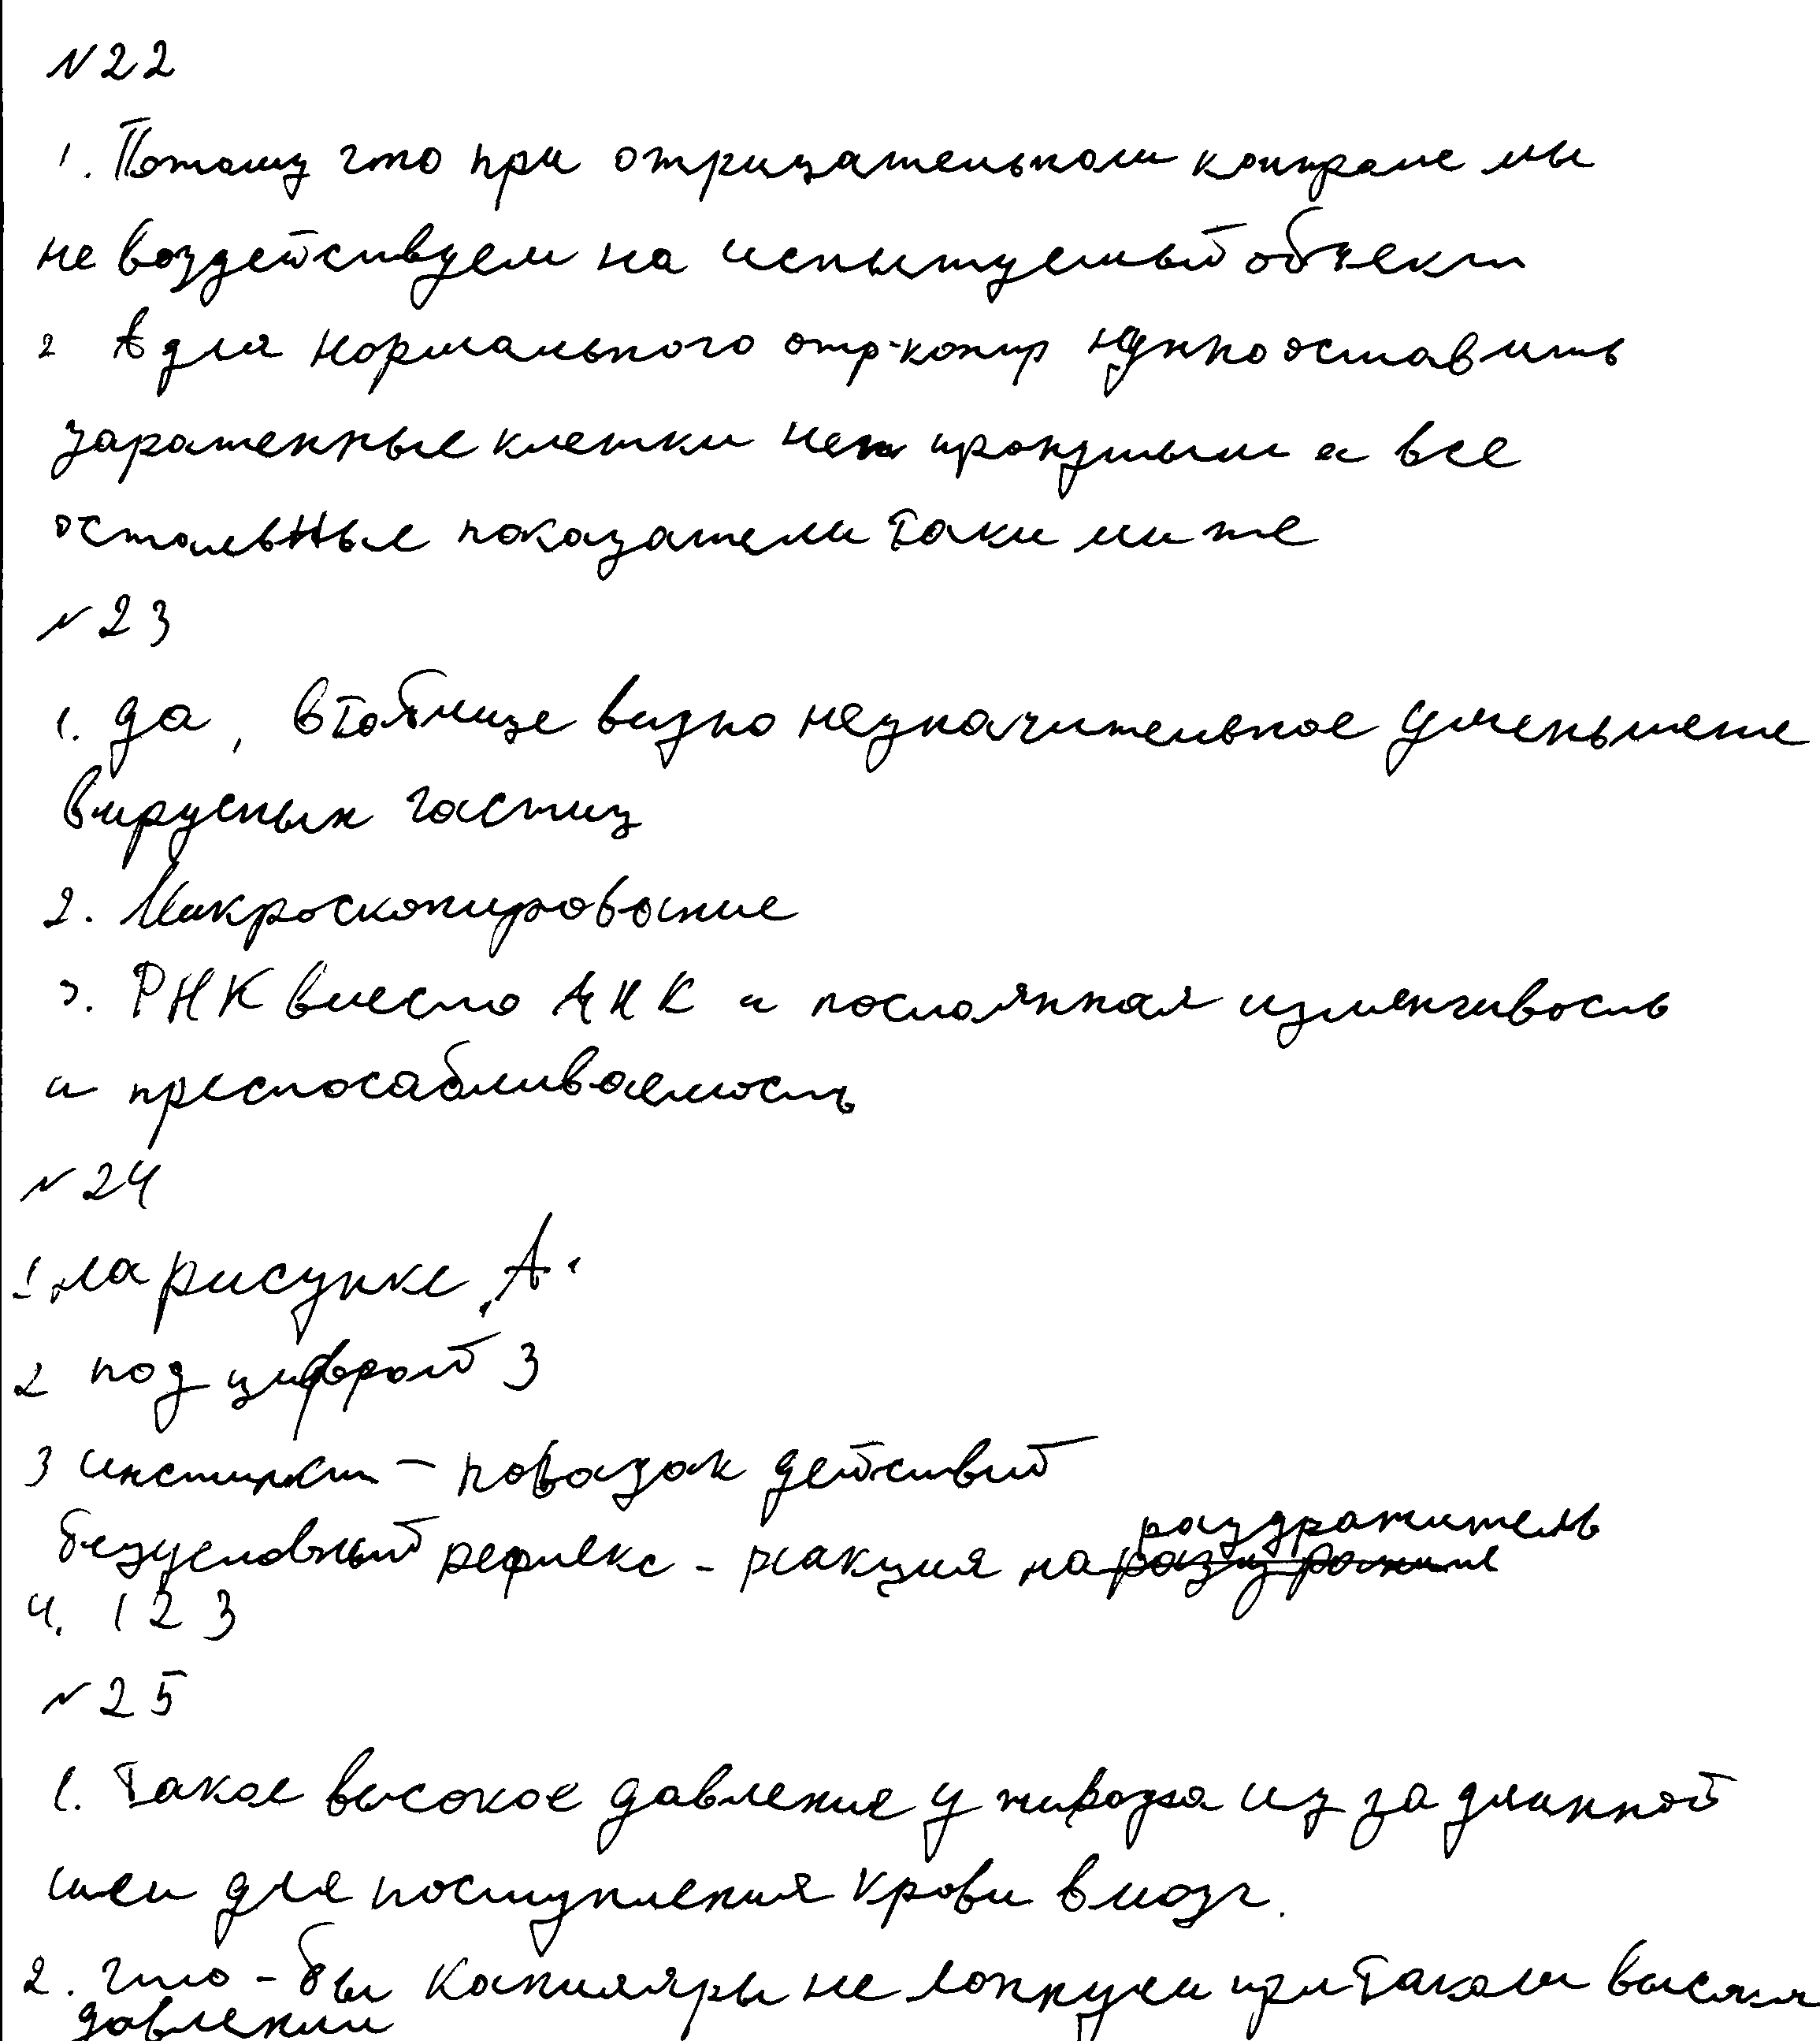 №22
1. Потому что при отрицательном контроле мы
не воздействуем на испытуемый объект
2 А для нормального отр-контр нужно оставить
зараженные клетки нет тронутыми а все
остальные показатели такими же
№23
1. да, в таблице видно незначительное уменьшение
вирусных частиц
2. Микроскопирование
3. РНК вместо ДНК и постоянная изменчивость
и преспосабливаемость
№24
1. на рисунке "А"
2 под цифрой 3
3 инстинкт - порядок действий
раздражитель
безусловный рефлекс - реакция на
4. 1 2 3
№25
1. Такое высокое давление у жирафа из за длинной
шеи для поступления крови в мозг.
2. что-бы капиляры не лопнули при таком
давлении